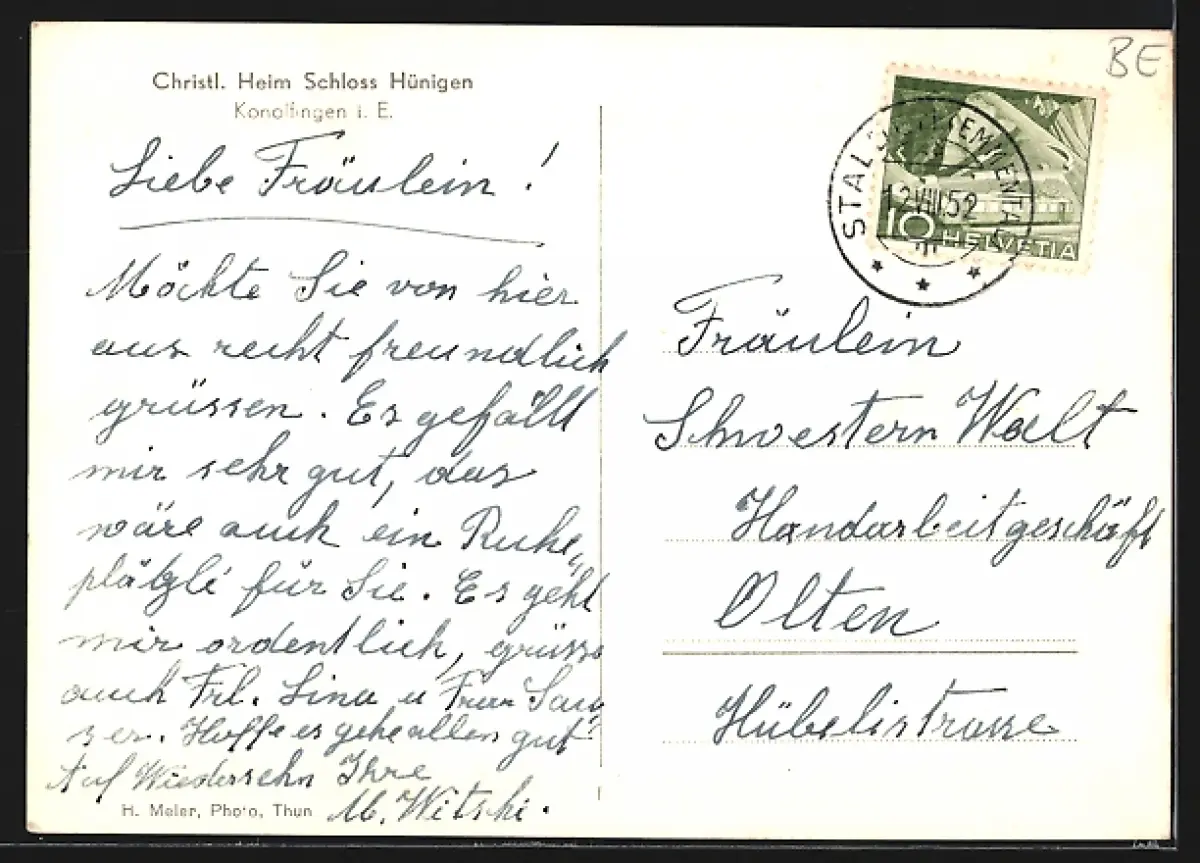 Christl. Heim Schloss Hünigen
Konolfingen i. E.
Liebe Fräulein!
Möchte Sie von hier
aus recht freundlich
grüssen. Es gefällt
mir sehr gut, das
wäre auch ein Ruhe„
plätzli für Sie. Es geht
mir ordentlich, grüsse
auch Frl. Lina u Frau Sau„
ser. Hoffe es gehe allen gut
Auf Wiedersehn Ihre
M. Witschi.
H. Meier, Photo, Thun
BE
STALDEN (EMMENTAL)
12.VIII.52
10 HELVETIA
Fräulein
Schwestern Wält
Handarbeitgeschäft
Olten
Hübelistrasse